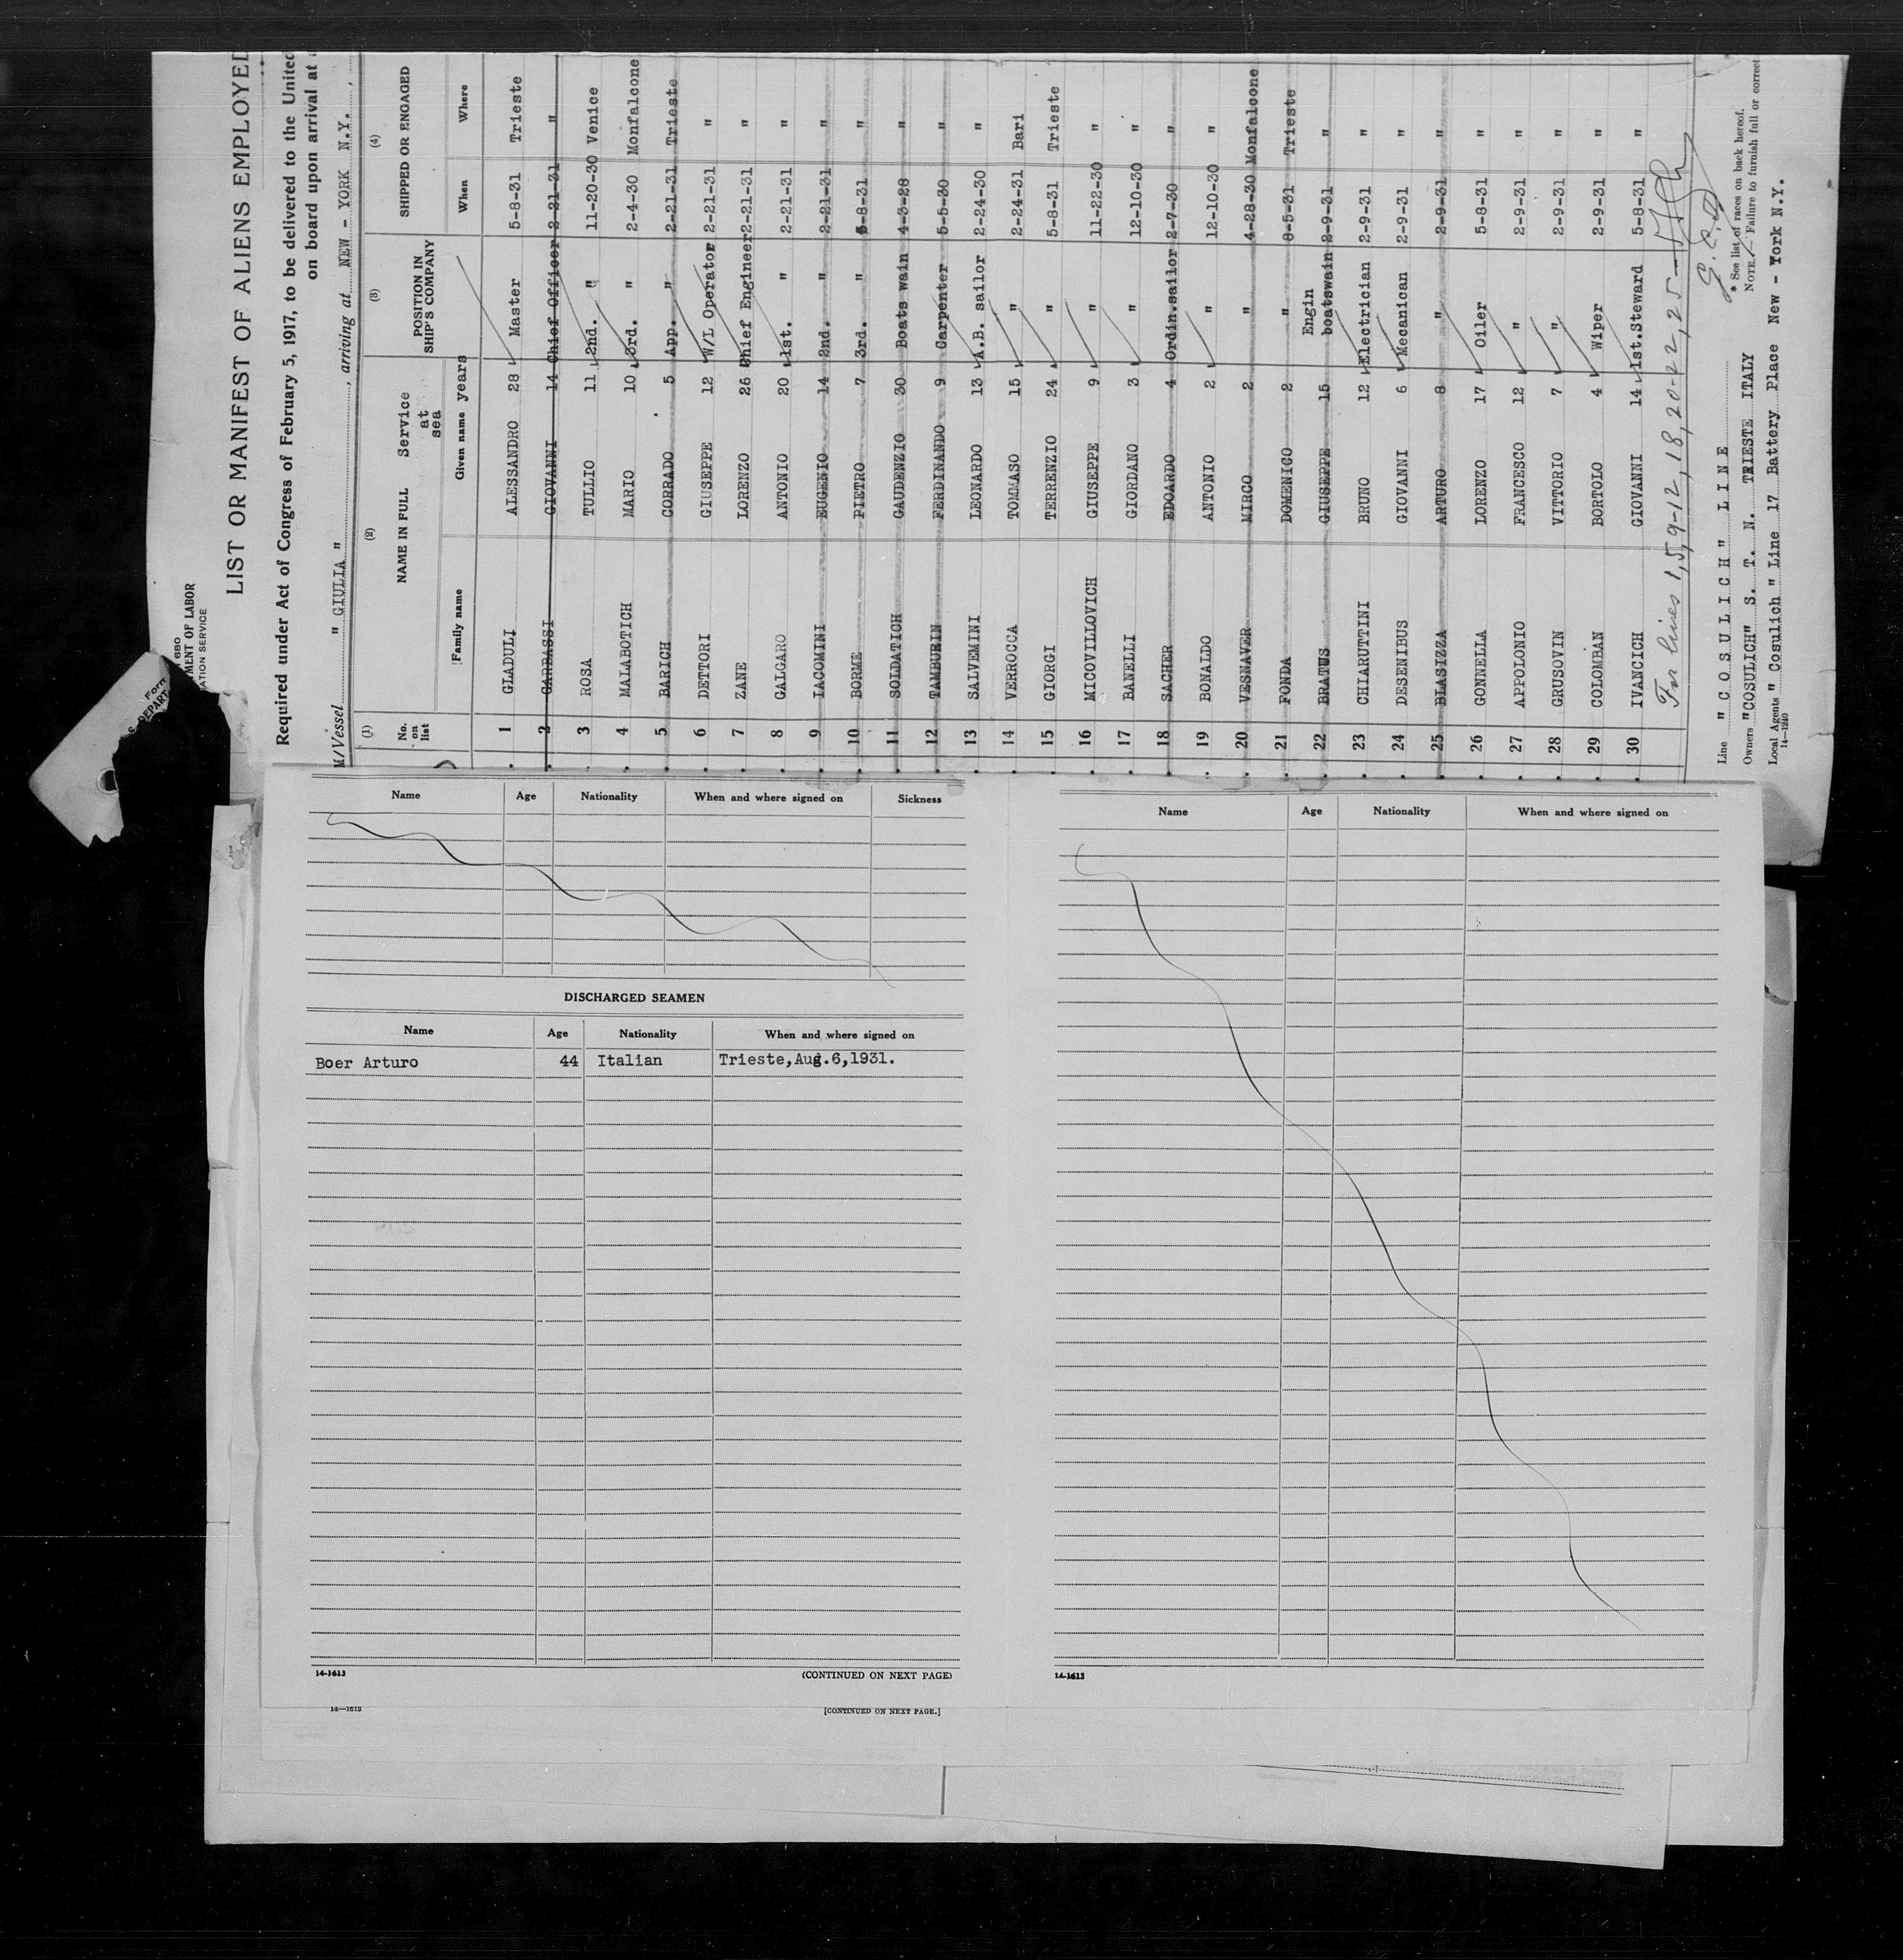 LIST OR MANIFEST OF ALIENS EMPLOYED
Required under Act of Congress of February 5, 1917, to be delivered to the United
on board upon arrival at
MENT OF LABOR
ATION SERVICE
M/Vessel " GIULIA " , arriving at NEW - YORK N.Y. ,
(1) (2) (3) (4)
No. on list NAME IN FULL Service at sea years POSITION IN SHIP'S COMPANY SHIPPED OR ENGAGED
Family name Given name When Where
1 GLADULI ALESSANDRO 28 Master 5-8-31 Trieste
2 GARBASSI GIOVANNI 14 Chief Officer 2-21-31 "
3 ROSA TULLIO 11 2nd. " 11-20-30 Venice
4 MALABOTICH MARIO 10 3rd. " 2-4-30 Monfalcone
5 BARICH CORRADO 5 App. " 2-21-31 Trieste
6 DETTORI GIUSEPPE 12 W/L Operator 2-21-31 "
7 ZANE LORENZO 26 Chief Engineer 2-21-31 "
8 GALGARO ANTONIO 20 1st. " 2-21-31 "
9 IACOMINI EUGENIO 14 2nd. " 2-21-31 "
10 BORME PIETRO 7 3rd. " 5-8-31 "
11 SOLDATICH GAUDENZIO 30 Boats wain 4-3-28 "
12 TAMBURIN FERDINANDO 9 Carpenter 5-5-30 "
13 SALVEMINI LEONARDO 13 A.B. sailor 2-24-30 "
14 VERROCCA TOMMASO 15 " 2-24-31 Bari
15 GIORGI TERRENZIO 24 " 5-8-31 Trieste
16 MICOVILLOVICH GIUSEPPE 9 " 11-22-30 "
17 BANELLI GIORDANO 3 " 12-10-30 "
18 SACHER EDOARDO 4 Ordin.sailor 2-7-30 "
19 BONALDO ANTONIO 2 " 12-10-30 "
20 VESNAVER MIRCO 2 " 4-28-30 Monfalcone
21 FONDA DOMENICO 2 " 8-5-31 Trieste
22 BRATUS GIUSEPPE 15 Engin boatswain 2-9-31 "
23 CHIARUTTINI BRUNO 12 Electrician 2-9-31 "
24 DESENIBUS GIOVANNI 6 Mecanican 2-9-31 "
25 BLASIZZA ARTURO 8 " 2-9-31 "
26 GONNELLA LORENZO 17 Oiler 5-8-31 "
27 APPOLONIO FRANCESCO 12 " 2-9-31 "
28 GRUSOVIN VITTORIO 7 " 2-9-31 "
29 COLOMBAN BORTOLO 4 Wiper 2-9-31 "
30 IVANCICH GIOVANNI 14 1st.Steward 5-8-31 "
For lines 1,5,9-12,18,20-22,25-
Line " C O S U L I C H " L I N E
* See list of races on back hereof.
Owners "COSULICH" S. T. N. TRIESTE ITALY
NOTE.— Failure to furnish full or correct
Local Agents " Cosulich " Line 17 Battery Place New - York N.Y.
14-1240
Name Age Nationality When and where signed on Sickness
DISCHARGED SEAMEN
Name Age Nationality When and where signed on
Boer Arturo 44 Italian Trieste,Aug.6,1931.
14-1613 (CONTINUED ON NEXT PAGE)
14—1613 [CONTINUED ON NEXT PAGE.]
Name Age Nationality When and where signed on
14-1613